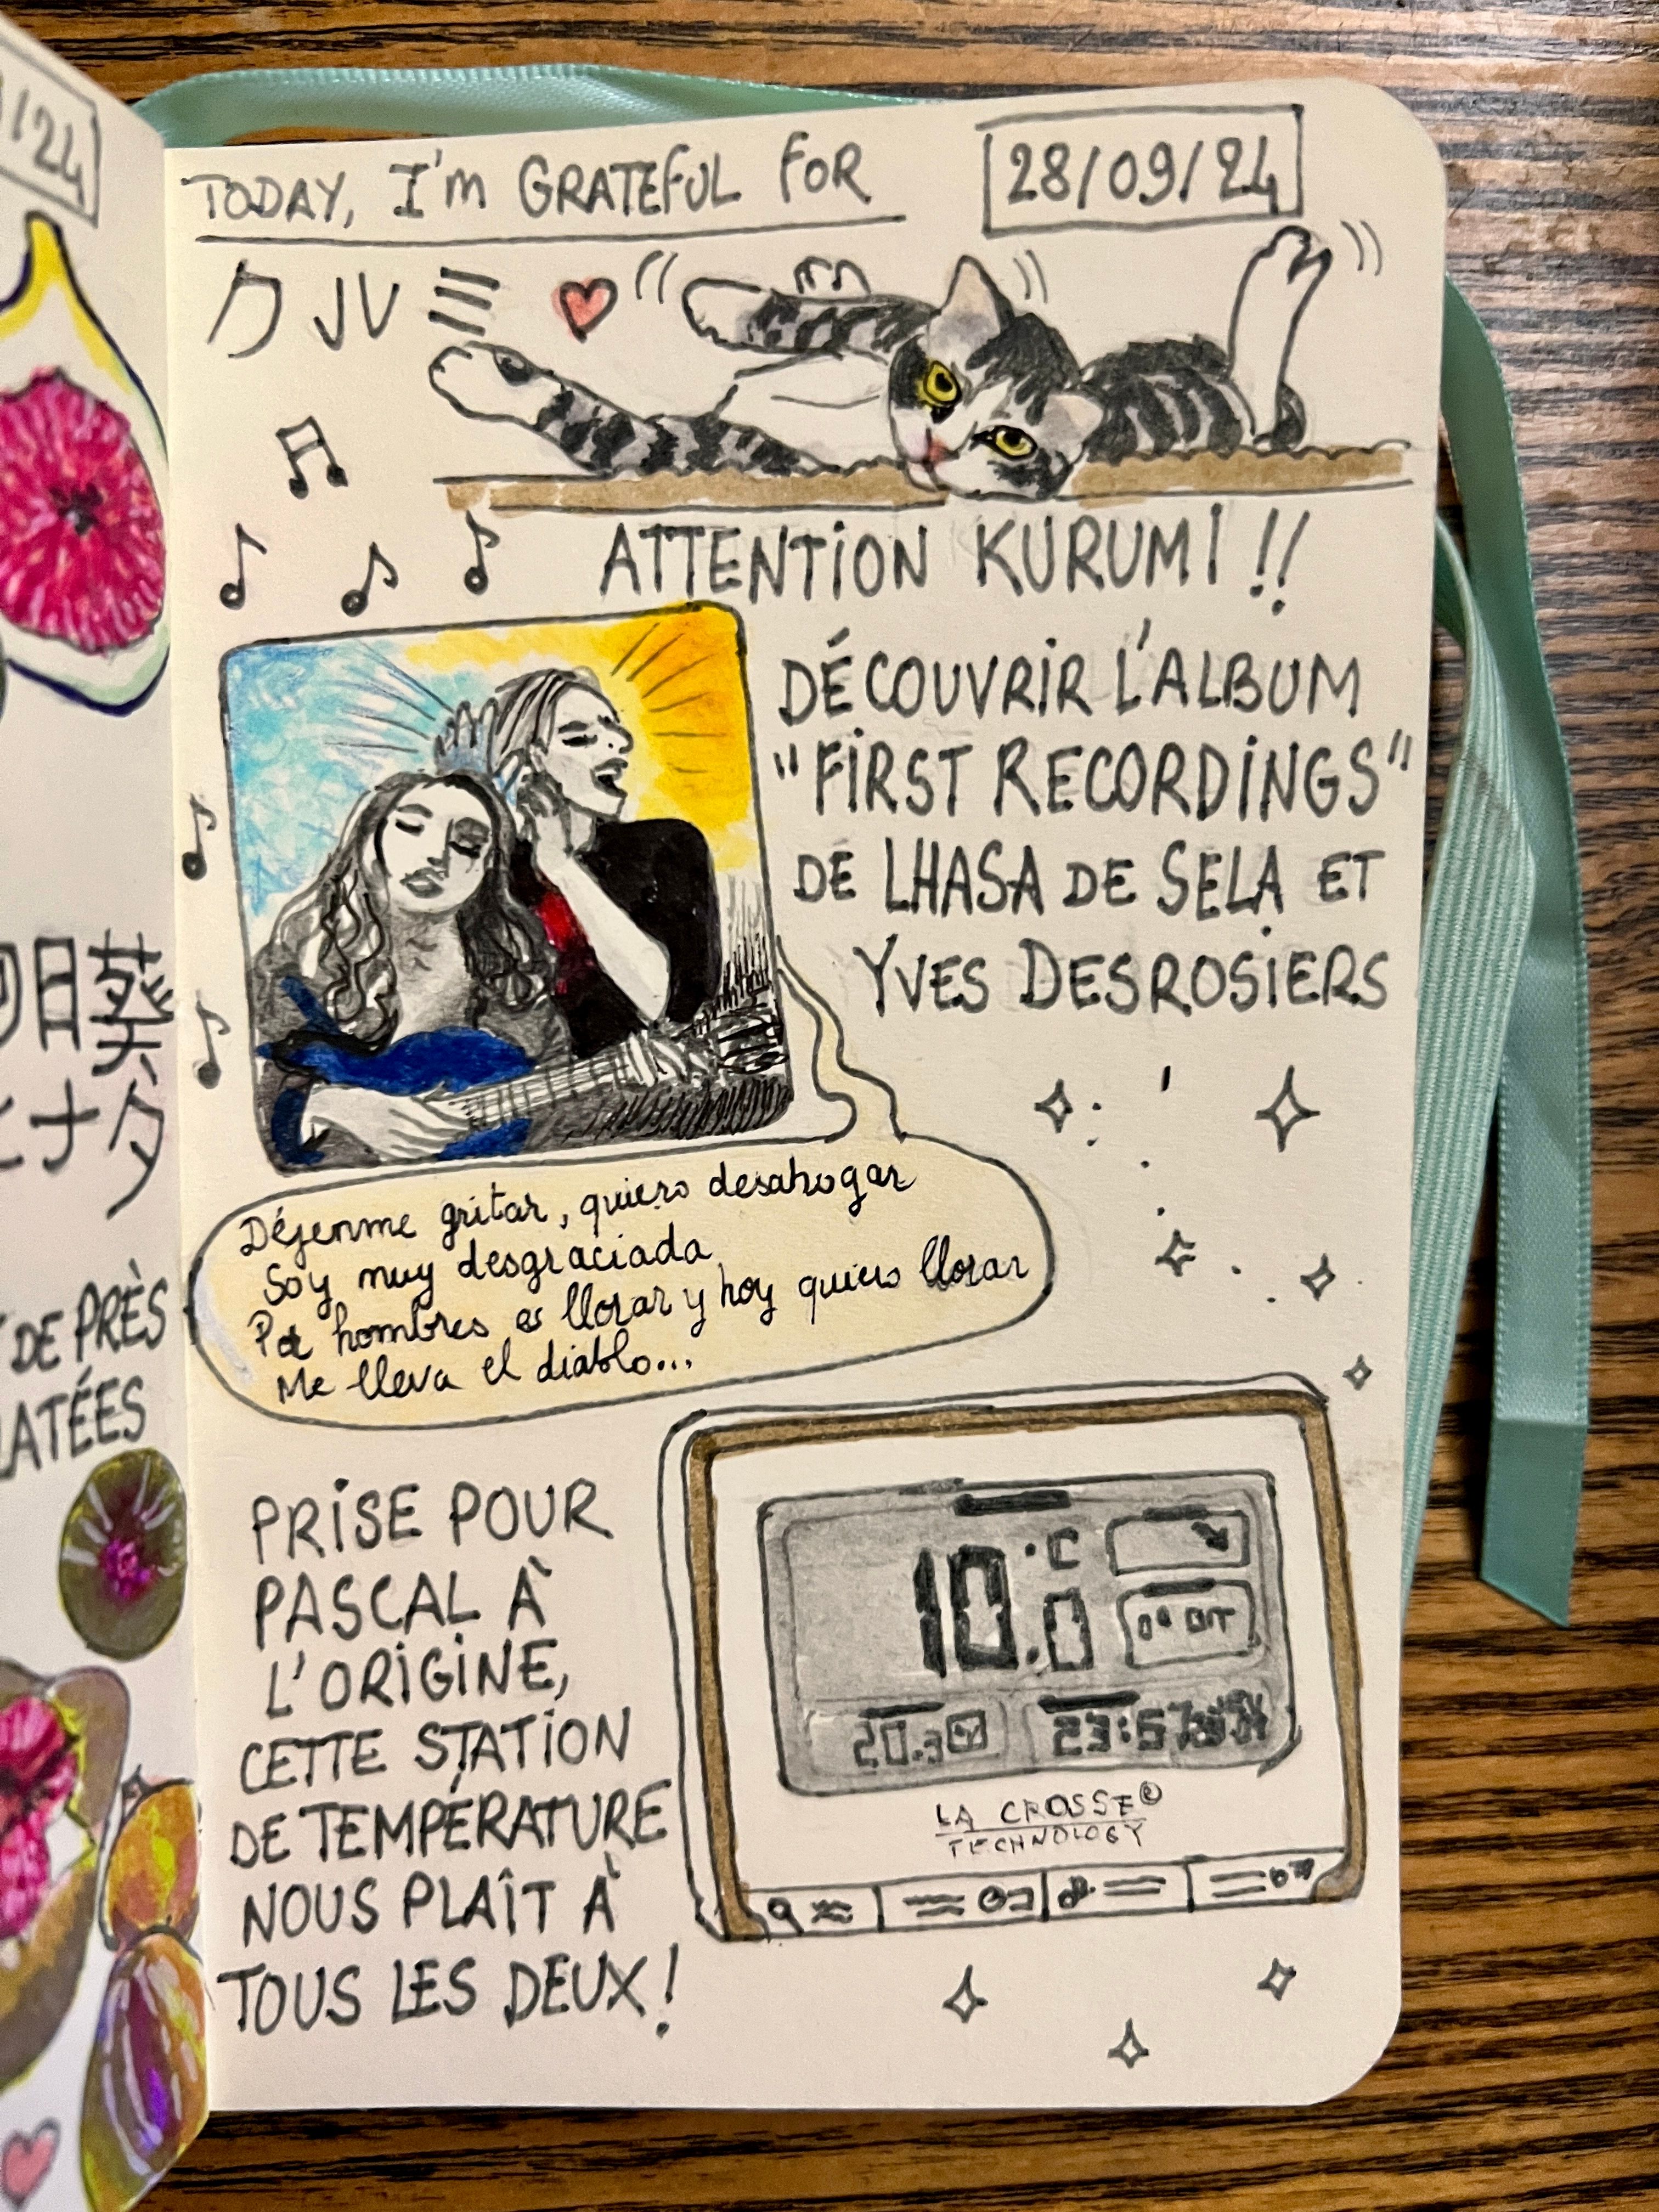 /24
DE PRÈS
ATÉES
TODAY, I'm GRATEFUL FOR
28/09/24
クルミ
ATTENTION KURUMI !!
DÉCOUVRIR L'ALBUM
"FIRST RECORDINGS"
DE LHASA DE SELA ET
YVES DESROSIERS
Déjenme gritar, quiero desahogar
Soy muy desgraciada
Por hombres es llorar y hoy quiero llorar
Me lleva el diablo...
PRISE POUR
PASCAL À
L'ORIGINE,
CETTE STATION
DE TEMPÉRATURE
NOUS PLAÎT À
TOUS LES DEUX !
10.0 °C
OUT
20.3
23:57
LA CROSSE
TECHNOLOGY